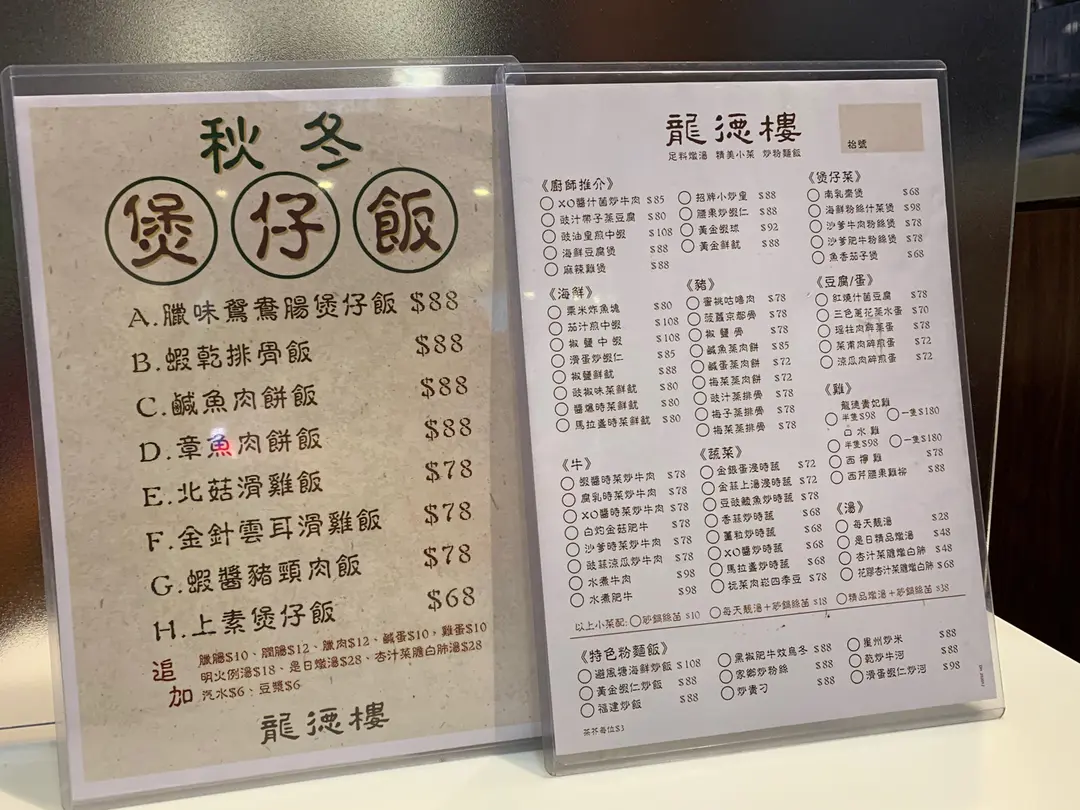 秋 冬
煲仔飯
A.臘味鴛鴦腸煲仔飯 $88
B.蝦乾排骨飯 $88
C.鹹魚肉餅飯 $88
D.章魚肉餅飯 $88
E.北菇滑雞飯 $78
F.金針雲耳滑雞飯 $78
G.蝦醬豬頸肉飯 $78
H.上素煲仔飯 $68
追加
臘腸$10、潤腸$12、臘肉$12、鹹蛋$10，雞蛋$10
明火例湯$18、是日燉湯$28、杏汁菜膽白肺湯$28
汽水$6、豆漿$6
龍德樓
龍德樓
足料燉湯 精美小菜 炒粉麵飯
枱號
《廚師推介》
XO醬什菌炒牛肉 $85
豉汁帶子蒸豆腐 $80
豉油皇煎中蝦 $108
海鮮豆腐煲 $88
麻辣雞煲 $88
招牌小炒皇 $88
腰果炒蝦仁 $88
黃金蝦球 $92
黃金鮮魷 $88
《煲仔菜》
南乳齋煲 $68
海鮮粉絲什菜煲 $98
沙爹牛肉粉絲煲 $78
沙爹肥牛粉絲煲 $78
魚香茄子煲 $68
《海鮮》
粟米炸魚塊 $80
茄汁煎中蝦 $108
椒鹽中蝦 $108
滑蛋炒蝦仁 $85
椒鹽鮮魷 $88
豉椒味菜鮮魷 $80
醬爆時菜鮮魷 $80
馬拉盞時菜鮮魷 $80
《豬》
蜜桃咕嚕肉 $78
菠蘿京都骨 $78
椒鹽骨 $78
鹹魚蒸肉餅 $85
鹹蛋蒸肉餅 $72
梅菜蒸肉餅 $72
豉汁蒸排骨 $78
梅子蒸排骨 $78
梅菜蒸排骨 $78
《豆腐/蛋》
紅燒什菌豆腐 $78
三色蔥花蒸水蛋 $70
瑤柱肉碎蒸蛋 $78
菜甫肉碎煎蛋 $72
涼瓜肉碎煎蛋 $72
《雞》
龍德貴妃雞
半隻$98 一隻$180
白水雞
半隻$98 一隻$180
西檸雞 $78
西芹腰果雞柳 $88
《牛》
蝦醬時菜炒牛肉 $78
腐乳時菜炒牛肉 $78
XO醬時菜炒牛肉 $78
白灼金菇肥牛 $78
沙爹時菜炒牛肉 $78
豉蒜涼瓜炒牛肉 $78
水煮牛肉 $98
水煮肥牛 $98
《蔬菜》
金銀蛋浸時蔬 $72
金蒜上湯浸時蔬 $72
豆豉鯪魚炒時蔬 $78
香蒜炒時蔬 $68
薑粒炒時蔬 $68
XO醬炒時蔬 $68
馬拉盞炒時蔬 $68
欖菜肉崧四季豆 $78
《湯》
每天靚湯 $28
是日精品燉湯 $48
杏汁菜膽燉白肺 $48
花膠杏汁菜膽燉白肺 $68
以上小菜配: 砂鍋絲苗 $10 每天靚湯+砂鍋絲苗 $18 精品燉湯+砂鍋絲苗 $38
《特色粉麵飯》
避風塘海鮮炒飯 $108
黃金蝦仁炒飯 $88
福建炒飯 $88
黑椒肥牛炆烏冬 $88
家鄉炒粉絲 $88
炒貴刁 $88
星州炒米 $88
乾炒牛河 $88
滑蛋蝦仁炒河 $98
茶芥每位$3